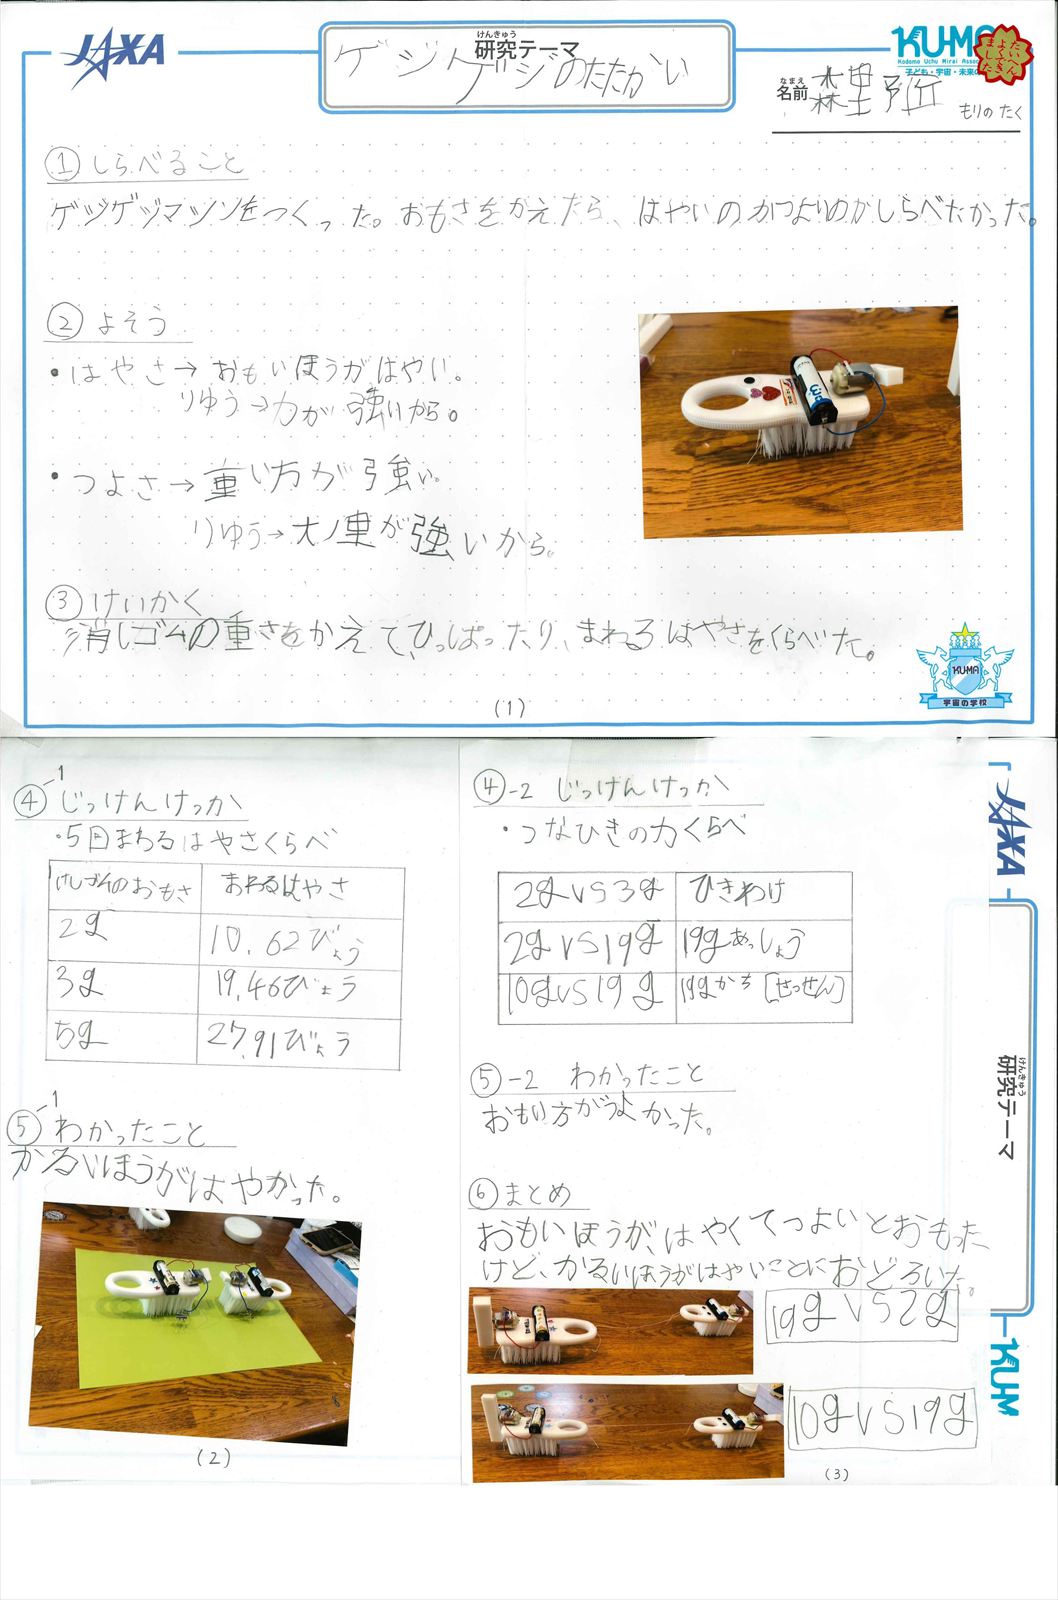 JAXA
けんきゅう
研究テーマ
ゲジゲジのたたかい
KUMA
Kodomo Uchu Mirai Assoc
子ども・宇宙・未来の
なまえ
名前
もりの たく
① しらべること
ゲジゲジマシンをつくった。おもさをかえたら、はやいのかつよいのかしらべたかった。
② よそう
・はやさ→おもいほうがはやい。
りゆう→力が強いから。
・つよさ→重い方が強い。
りゆう→が強いから。
③ けいかく
消しゴムの重さをかえて、ひっぱったり、まわるはやさをくらべた。
KUMA
宇宙の学校
(1)
④-1 じっけんけっか
・5回まわるはやさくらべ
けしゴムのおもさ まわるはやさ
2g 10.62びょう
3g 19.46びょう
5g 27.91びょう
⑤-1 わかったこと
かるいほうがはやかった。
(2)
④-2 じっけんけっか
・つなひきの力くらべ
2gvs3g ひきわけ
2gvs19g 19gあっしょう
10gvs19g 19gかち [せっせん]
⑤-2 わかったこと
おもい方がつよかった。
⑥まとめ
おもいほうが、はやくてつよいとおもった
けど、かるいほうがはやいことにおどろいた。
19gvs2g
10gvs19g
(3)
JAXA
けんきゅう
研究テーマ
KUM